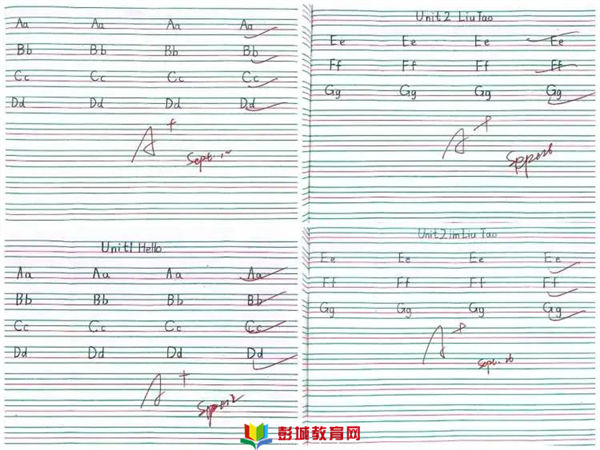 Aa Aa Aa Aa
Bb Bb Bb Bb
Cc Cc Cc Cc
Dd Dd Dd Dd
A+
Unit 2 Liu Tao
Ee Ee Ee Ee
Ff Ff Ff Ff
Gg Gg Gg Gg
A+
Unit1 Hello
Aa Aa Aa Aa
Bb Bb Bb Bb
Cc Cc Cc Cc
Dd Dd Dd Dd
A+
Unit2 im Liu Tao
Ee Ee Ee Ee
Ff Ff Ff Ff
Gg Gg Gg Gg
A+
彭城教育网